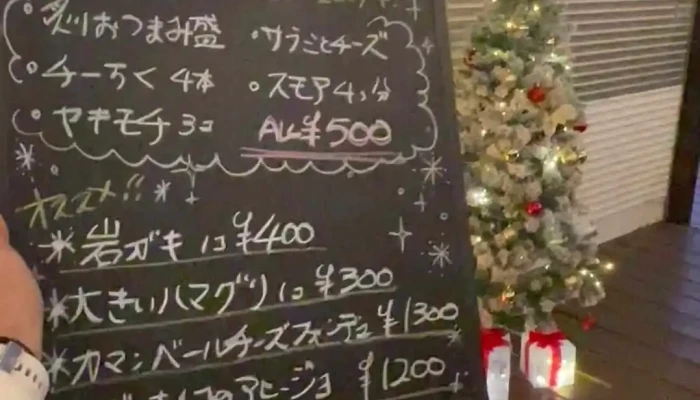 炙りおつまみ盛 ・サラミとチーズ
・チーちく 4本 ・スモア4コ分
・ヤキモチ 3コ ALL¥500
オススメ!!
*岩ガキ 1コ ¥400
*大きいハマグリ1コ ¥300
*カマンベールチーズフォンデュ ¥1300
のアヒージョ ¥1200